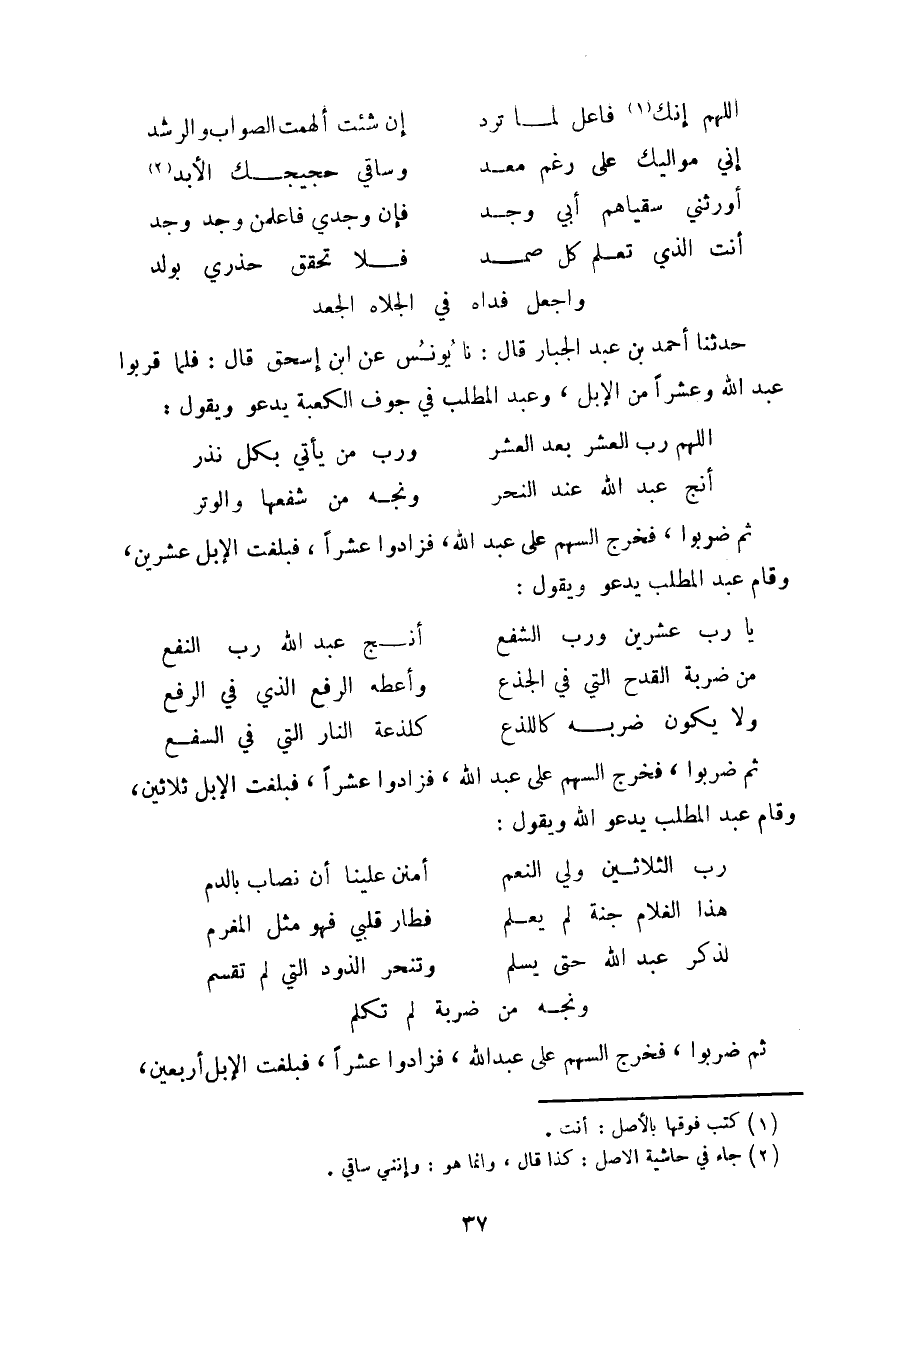 اللهم إنك(١) فاعل لمـا ترد إن شئت ألهمت الصواب والرشد
إني مواليك على رغم معـد وساقي حجيجـك الأبد(٢)
أورثني سقياهم أبي وجـد فإن وجدي فاعلمن وجد وجد
أنت الذي تعـلم كل صمـد فـلا تحقق حذري بولد
واجعل فداه في الجلاه الجعد
حدثنا أحمد بن عبد الجبار قال : نا يُونُس عن ابن إسحق قال : فلما قربوا
عبد الله وعشراً من الإبل ، وعبد المطلب في جوف الكعبة يدعو ويقول :
اللهم رب العشر بعد العشر ورب من يأتي بكل نذر
أنج عبد الله عند النحر ونجـه من شفعها والوتر
ثم ضربوا ، فخرج السهم على عبد الله، فزادوا عشراً ، فبلغت الإبل عشرين،
وقام عبد المطلب يدعو ويقول :
يا رب عشرين ورب الشفع أنـج عبد الله رب النفع
من ضربة القدح التي في الجذع وأعطه الرفع الذي في الرفع
ولا يكون ضربـه كاللذع كلذعة النار التي في السفـع
ثم ضربوا ، فخرج السهم على عبد الله ، فزادوا عشراً ، فبلغت الإبل ثلاثين،
وقام عبد المطلب يدعو الله ويقول :
رب الثلاثـين ولي النعم أمنن علينا أن نصاب بالدم
هذا الغلام جنة لم يعـلم فطار قلبي فهو مثل المغرم
لذكر عبد الله حتى يسلم وتنحر الذود التي لم تقسم
ونجـه من ضربة لم تكلم
ثم ضربوا ، فخرج السهم على عبدالله ، فزادوا عشراً ، فبلغت الإبل أربعين،
(١) كتب فوقها بالأصل : أنت .
(٢) جاء في حاشية الاصل : كذا قال ، وانما هو : وإنني ساقي .
٣٧